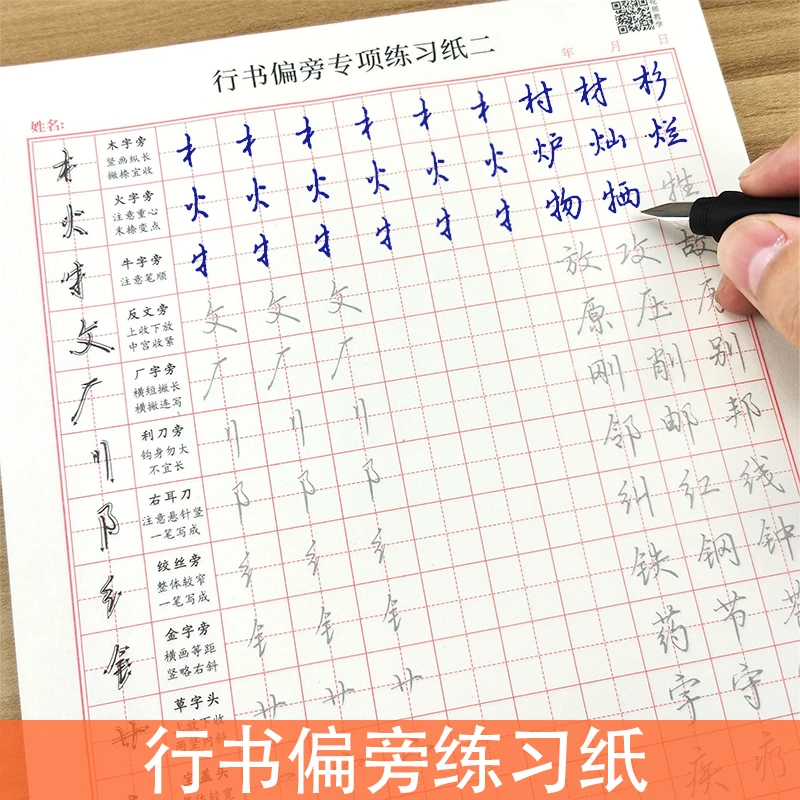 视频教学
行书偏旁专项练习纸二
年 月 日
姓名:
木字旁
竖画纵长
撇捺宜收
村 材 杉
火 火字旁
注意重心
末捺变点
火 火 火 火 火 火 炉 灿 烂
牜 牛字旁
注意笔顺
牜 牜 牜 牜 牜 牜 物 牺 牲
攵 反文旁
上收下放
中宫收紧
攵 攵 攵 放 攻 故
厂 厂字旁
横短撇长
横撇连写
厂 厂 厂 原 压
刂 利刀旁
钩身勿大
不宜长
刂 刂 刂 刚 削 别
阝 右耳刀
注意悬针竖
一笔写成
阝 阝 阝 邻 邮 邦
纟 绞丝旁
整体较窄
一笔写成
纟 纟 纟 纠 红 线
钅 金字旁
横画等距
竖略右斜
钅 钅 钅 铁 钢 钟
艹 草字头
艹 艹 艹 药 节
宝盖头
字 守
疾 疗
行书偏旁练习纸